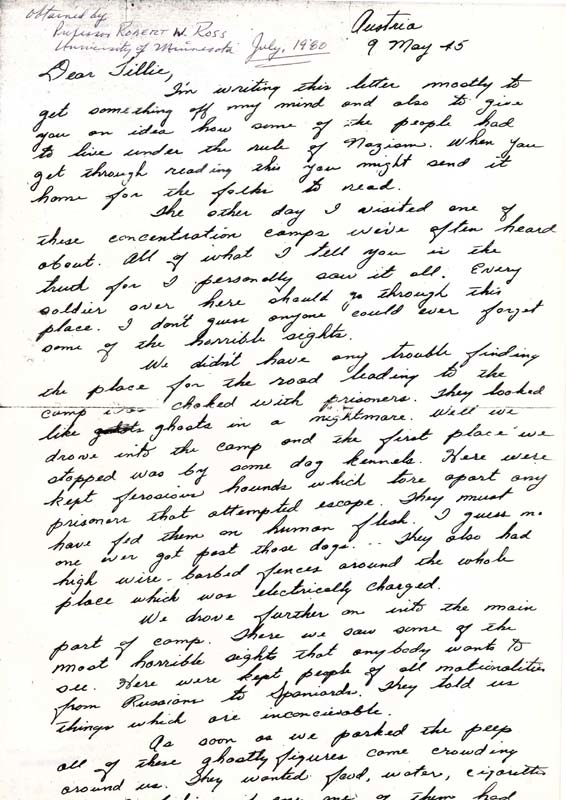 obtained by
Professor ROBERT W. ROSS
University of Minnesota July, 1980
Austria
9 May 45
Dear Tillie,
I'm writing this letter mostly to
get something off my mind and also to give
you an idea how some of the people had
to live under the rule of Nazism. When you
get through reading this you might send it
home for the folks to read.
The other day I visited one of
these concentration camps we've often heard
about. All of what I tell you is the
trud for I personally saw it all. Every
soldier over here should go through this
place. I don't guess anyone could ever forget
some of the horrible sights.
We didn't have any trouble finding
the place for the road leading to the
camp was choked with prisoners. They looked
like ghosts in a nightmare. Well we
drove into the camp and the first place we
stopped was by some dog kennels. Here were
kept ferosious hounds which tore apart any
prisoners that attempted escape. They must
have fed them on human flesh. I guess no
one ever got past those dogs... They also had
high wire-barbed fences around the whole
place which was electrically charged.
We drove further on into the main
part of camp. There we saw some of the
most horrible sights that anybody wants to
see. Here were kept people of all nationalities
from Russians to Spaniards. They told us
things which are inconcievable.
As soon as we parked the peep
all of these ghostly figures came crowding
around us. They wanted food, water, cigarettes
one of them had